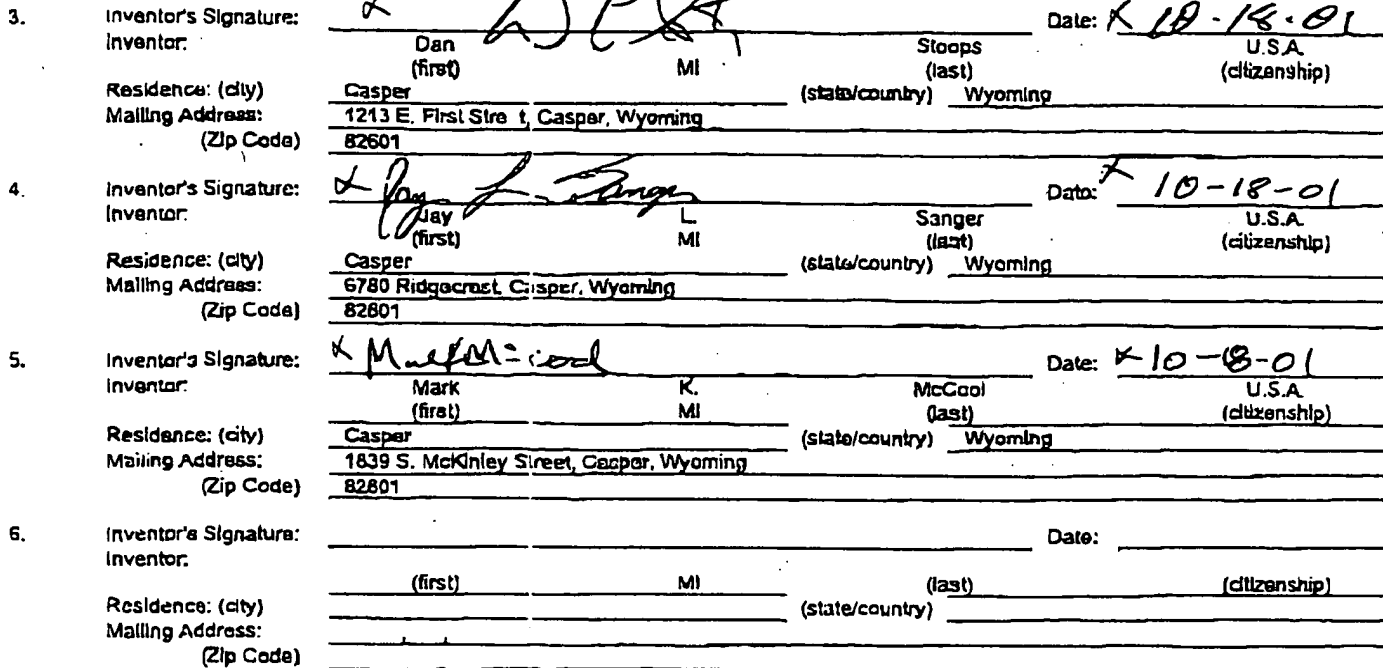 3. Inventor's Signature: Date: x 10-18-01
Inventor: Dan Stoops U.S.A.
(first) MI (last) (citizenship)
Residence: (city) Casper (state/country) Wyoming
Mailing Address: 1213 E. First Stre t, Casper, Wyoming
(Zip Code) 82601
4. Inventor's Signature: x Jay L. Sanger Date: x 10-18-01
Inventor: Jay L. Sanger U.S.A.
(first) MI (last) (citizenship)
Residence: (city) Casper (state/country) Wyoming
Mailing Address: 6780 Ridgecrest, Casper, Wyoming
(Zip Code) 82601
5. Inventor's Signature: x Date: x 10-18-01
Inventor: Mark K. McCool U.S.A.
(first) MI (last) (citizenship)
Residence: (city) Casper (state/country) Wyoming
Mailing Address: 1839 S. McKinley Street, Casper, Wyoming
(Zip Code) 82601
6. Inventor's Signature: Date:
Inventor:
(first) MI (last) (citizenship)
Residence: (city) (state/country)
Mailing Address:
(Zip Code)